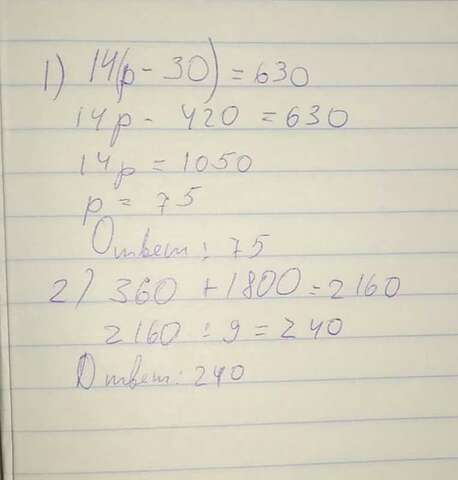 1) 14(p - 30) = 630
14p - 420 = 630
14p = 1050
p = 75
Ответ: 75
2) 360 + 1800 = 2160
2160 : 9 = 240
Ответ: 240